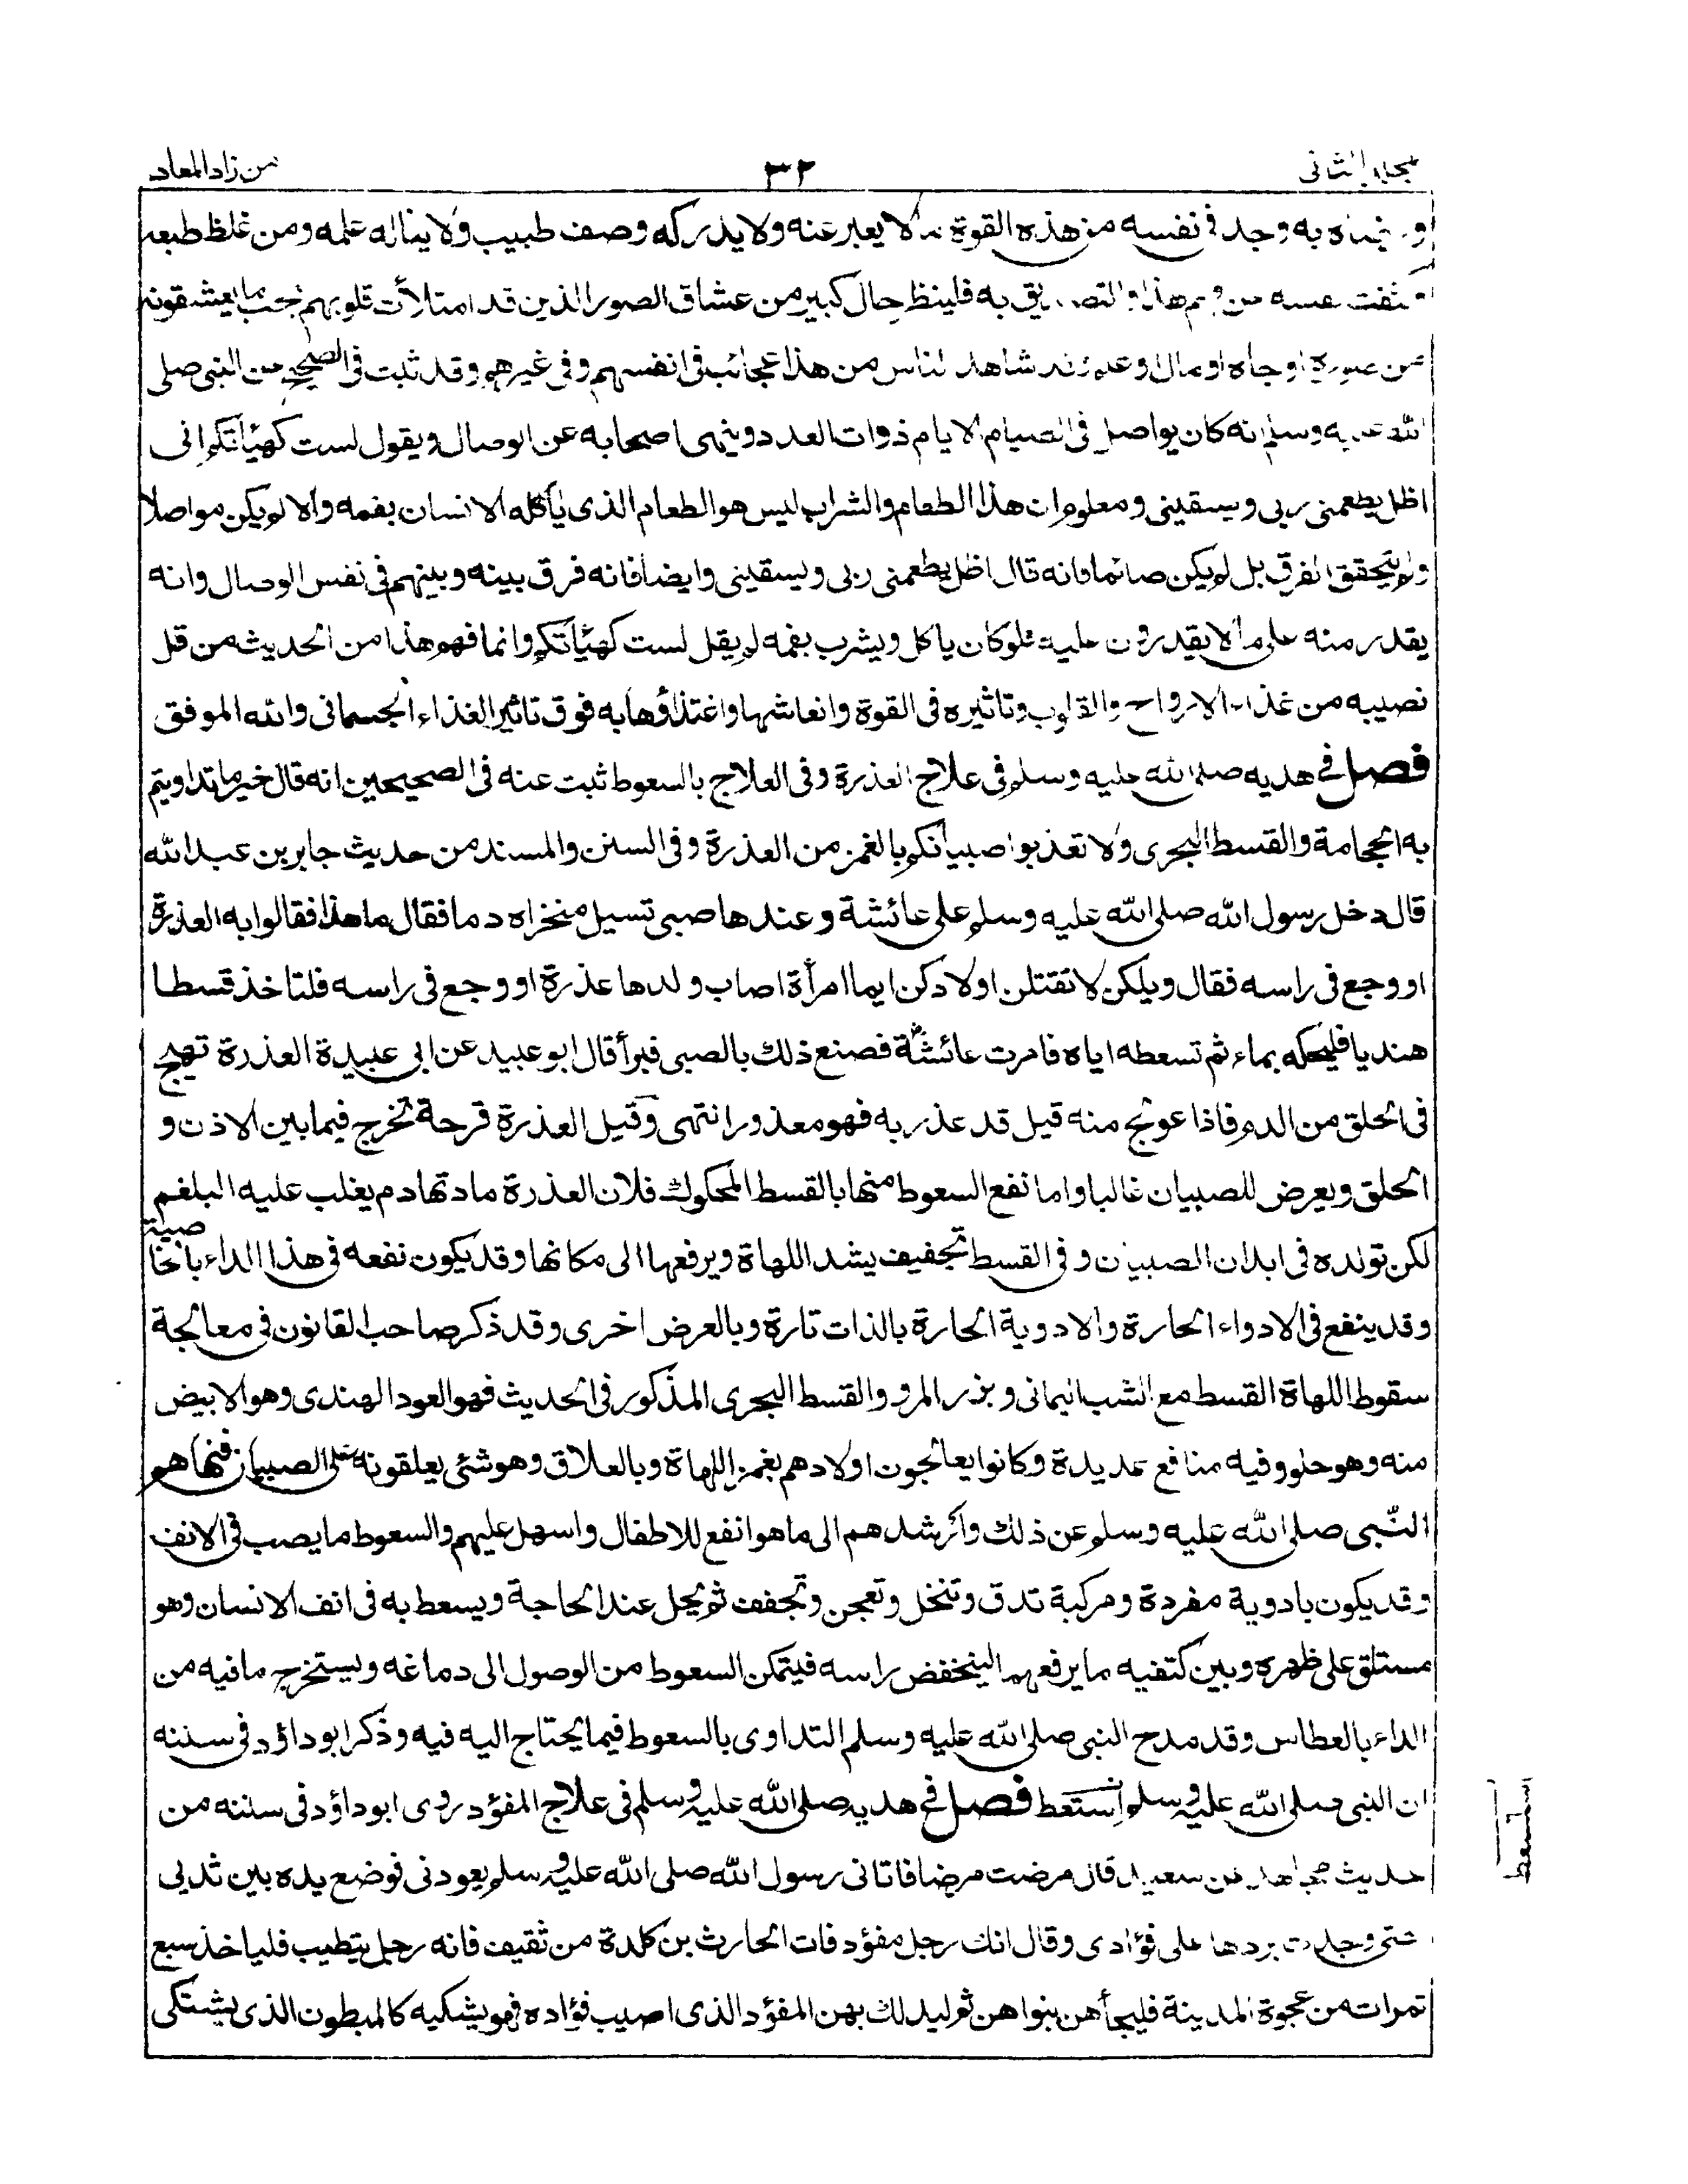 مجلد الثانی ٣٢ من زاد المعاد
به وجد فی نفسه من هذه القوة ما لا یعبر عنه ولا یدرکه وصف طبیب ولا یناله علمه ومن غلظ طبعه
به فلینظر حال کبیر من عشاق الصور الذین قد امتلأت قلوبهم بحب ما یعشقونه
من صورة او جاه او مال او علم وقد شاهد الناس من هذا عجائب فی انفسهم وفی غیرهم وقد ثبت فی الصحیح عن النبی صلی
الله علیه وسلم انه کان یواصل فی الصیام الایام ذوات العدد وینهی اصحابه عن الوصال ویقول لست کهیأتکم انی
اظل یطعمنی ربی ویسقینی ومعلوم ان هذا الطعام والشراب لیس هو الطعام الذی یأکله الانسان بفمه والا لم یکن مواصلا
ولم یتحقق الفرق بل لم یکن صائما فانه قال اظل یطعمنی ربی ویسقینی وایضا فانه فرق بینه وبینهم فی نفس الوصال وانه
یقدر منه علی ما لا یقدرون علیه فلو کان یاکل ویشرب بفمه لم یقل لست کهیأتکم وانما فهم هذا من الحدیث من قل
نصیبه من غذاء الارواح والقلوب وتاثیره فی القوة وانعاشها واغتذاؤها به فوق تاثیر الغذاء الجسمانی والله الموفق
فصل فی هدیه صلی الله علیه وسلم فی علاج العذرة وفی العلاج بالسعوط ثبت عنه فی الصحیحین انه قال خیر ما تداویتم
به الحجامة والقسط البحری ولا تعذبوا صبیانکم بالغمز من العذرة وفی السنن والمسند من حدیث جابر بن عبد الله
قال دخل رسول الله صلی الله علیه وسلم علی عائشة وعندها صبی تسیل منخراه دما فقال ما هذا فقالوا به العذرة
او وجع فی راسه فقال ویلکن لا تقتلن اولادکن ایما امرأة اصاب ولدها عذرة او وجع فی راسه فلتاخذ قسطا
هندیا فلیحکه بماء ثم تسعطه ایاه فامرت عائشة فصنع ذلک بالصبی فبرأ قال ابو عبید عن ابی عبیدة العذرة تهیج
فی الحلق من الدم فاذا عولج منه قیل قد عذر به فهو معذور انتهی وقیل العذرة قرحة تخرج فیما بین الاذن و
الحلق ویعرض للصبیان غالبا واما نفع السعوط منها بالقسط المحکوک فلان العذرة مادتها دم یغلب علیه البلغم
لکن تولده فی ابدان الصبیان وفی القسط تجفیف یشد اللهاة ویرفعها الی مکانها وقد یکون نفعه فی هذا الداء بالخاصیة
وقد ینفع فی الادواء الحارة والادویة الحارة بالذات تارة وبالعرض اخری وقد ذکر صاحب القانون فی معالجة
سقوط اللهاة القسط مع الشب الیمانی وبزر المرو والقسط البحری المذکور فی الحدیث فهو العود الهندی وهو الابیض
منه وهو حلو وفیه منافع عدیدة وکانوا یعالجون اولادهم بغمز اللهاة وبالعلاق وهو شئی یعلقونه علی الصبیان فنهاهم
النبی صلی الله علیه وسلم عن ذلک وارشدهم الی ما هو انفع للاطفال واسهل علیهم والسعوط ما یصب فی الانف
وقد یکون بادویة مفردة ومرکبة تدق وتنخل وتعجن وتجفف ثم یحل عند الحاجة ویسعط به فی انف الانسان وهو
مستلق علی ظهره وبین کتفیه ما یرفعهما لینخفض راسه فیتمکن السعوط من الوصول الی دماغه ویستخرج ما فیه من
الداء بالعطاس وقد مدح النبی صلی الله علیه وسلم التداوی بالسعوط فیما یحتاج الیه فیه وذکر ابو داؤد فی سننه
ان النبی صلی الله علیه وسلم استعط فصل فی هدیه صلی الله علیه وسلم فی علاج المفؤد روی ابو داؤد فی سننه من
حدیث مجاهد عن سعید قال مرضت مرضا فاتانی رسول الله صلی الله علیه وسلم یعودنی فوضع یده بین ثدیی
حتی وجدت بردها علی فؤادی وقال انک رجل مفؤد فات الحارث بن کلدة من ثقیف فانه رجل یتطبب فلیاخذ سبع
تمرات من عجوة المدینة فلیجأهن بنواهن ثم لیدلک بهن المفؤد الذی اصیب فؤاده فهو یشکیه کالمبطون الذی یشتکی